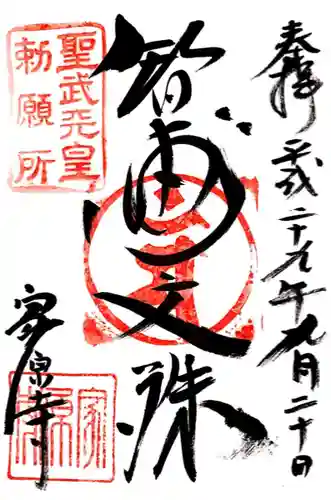 奉拝 平成二十九年九月二十日
聖武天皇
勅願所
智恵文殊
家原寺